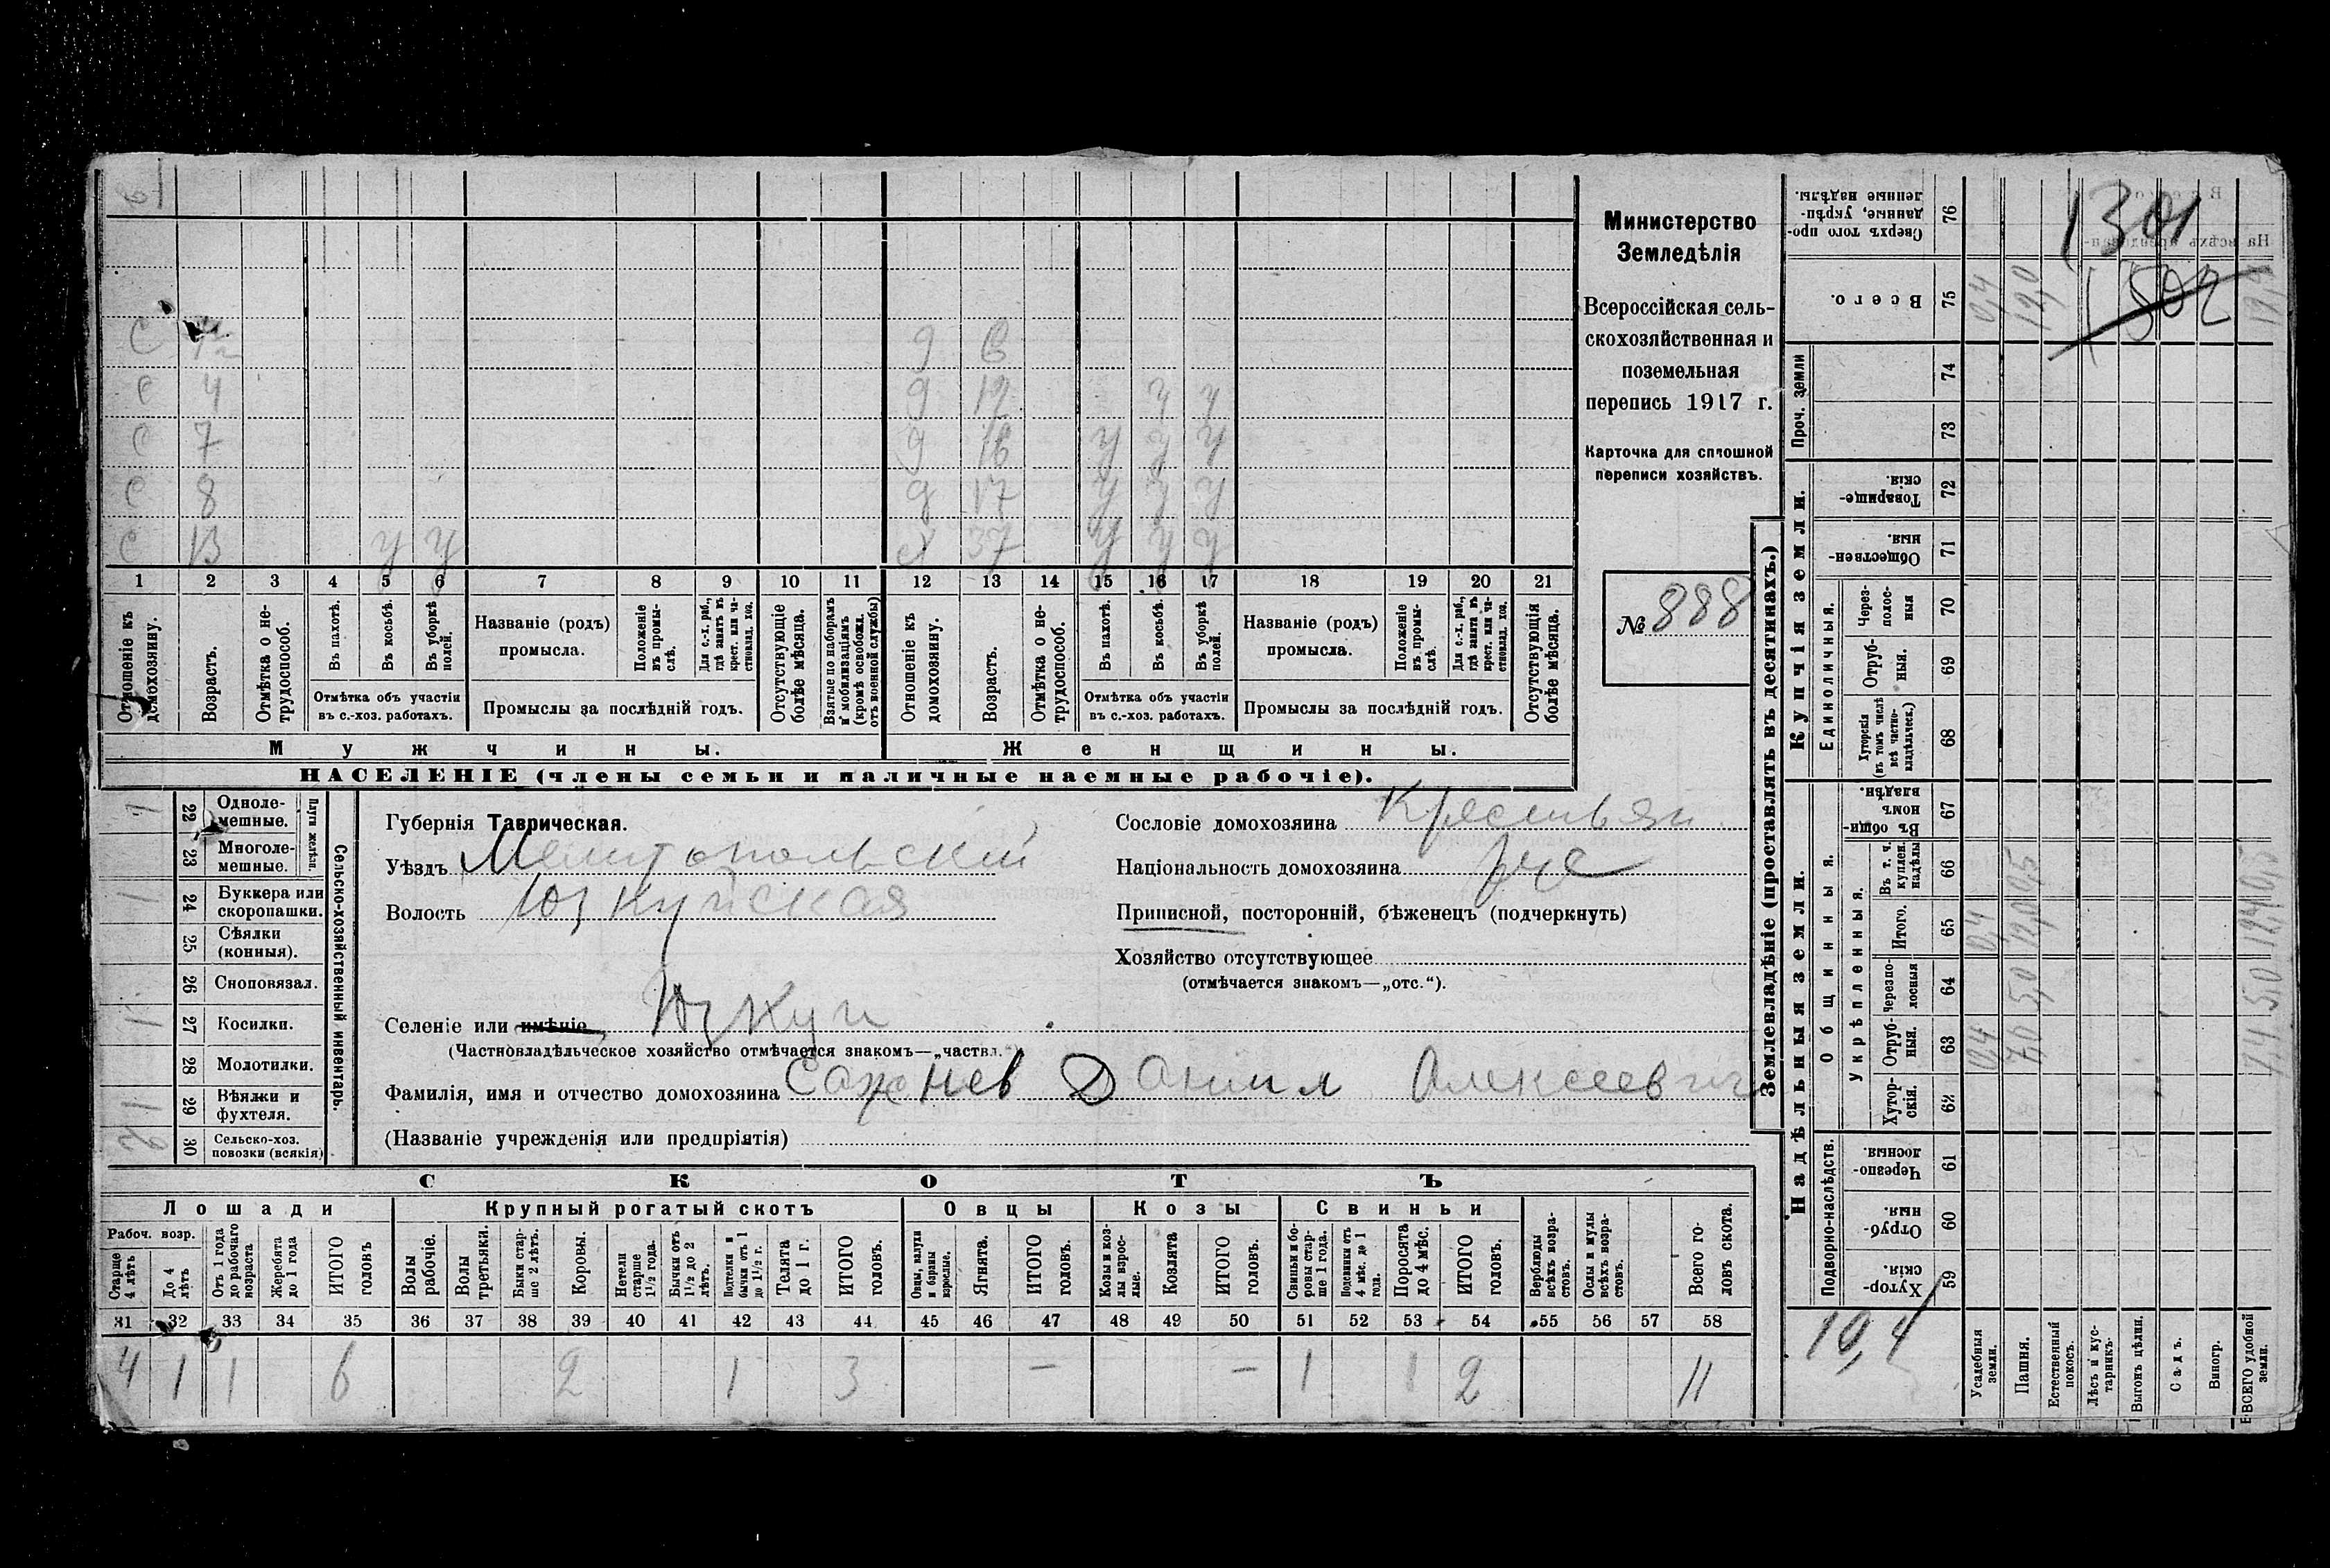 С 1½ д 6
С 4 д 12 у у
С 7 д 16 у у у
С 8 д 17 у у у
С 13 у у 37 у у у
1 2 3 4 5 6 7 8 9 10 11 12 13 14 15 16 17 18 19 20 21
Отношеніе къ домохозяину.
Возрастъ.
Отмѣтка о нетрудоспособ.
Въ пахотѣ.
Въ косьбѣ.
Въ уборкѣ полей.
Отмѣтка объ участіи
въ с.-хоз. работахъ.
Названіе (родъ)
промысла.
Положеніе въ промыслѣ.
Для с.-х. раб., гдѣ занятъ въ крест. или частновлад. хоз.
Промыслы за послѣдній годъ.
Отсутствующіе болѣе мѣсяца.
Взятые по наборамъ и мобилизаціямъ (кромѣ освобожд. отъ военной службы)
Отношеніе къ домохозяину.
Возрастъ.
Отмѣтка о нетрудоспособ.
Въ пахотѣ.
Въ косьбѣ.
Въ уборкѣ полей.
Отмѣтка объ участіи
въ с.-хоз. работахъ.
Названіе (родъ)
промысла.
Положеніе въ промыслѣ.
Для с.-х. раб., гдѣ занята въ крест. или частновлад. хоз.
Промыслы за послѣдній годъ.
Отсутствующія болѣе мѣсяца.
Мужчины. Женщины.
НАСЕЛЕНІЕ (члены семьи и наличные наемные рабочіе).
Министерство
Земледѣлія
Всероссійская сель-
скохозяйственная и
поземельная
перепись 1917 г.
Карточка для сплошной
переписи хозяйствъ.
№ 888
1 22 Одноле-
мешные.
23 Многоле-
мешные.
Плуги желѣзн.
1 24 Буккера или
скоропашки.
25 Сѣялки
(конныя).
26 Сноповязал.
1 27 Косилки.
28 Молотилки.
1 29 Вѣялки и
фухтеля.
2 30 Сельско-хоз.
повозки (всякія)
Сельско-хозяйственный инвентарь.
Губернія Таврическая.
Уѣздъ Мелитопольский
Волость Юзкуйская
Селеніе или имѣніе Юзкуи
(Частновладѣльческое хозяйство отмѣчается знакомъ—„частвл.“)
Фамилія, имя и отчество домохозяина Сажнев Данил Алексеевич
(Названіе учрежденія или предпріятія)
Сословіе домохозяина Крестьян
Національность домохозяина рус
Приписной, посторонній, бѣженецъ (подчеркнуть)
Хозяйство отсутствующее
(отмѣчается знакомъ—„отс.“).
СКОТЪ
Лошади Крупный рогатый скотъ Овцы Козы Свиньи
Рабоч. возр.
Старше 4 лѣтъ
До 4 лѣтъ
Отъ 1 года до рабочаго возраста
Жеребята до 1 года
ИТОГО головъ
Волы рабочіе.
Волы третьяки.
Быки старше 2 лѣтъ.
Коровы.
Нетели старше 1½ года.
Бычки отъ 1½ до 2 лѣтъ.
Подтелки и бычки отъ 1 до 1½ г.
Телята до 1 г.
ИТОГО головъ.
Овцы, валухи и бараны взрослые.
Ягнята.
ИТОГО головъ.
Козы и козлы взрослые.
Козлята
ИТОГО головъ.
Свиньи и боровы старше 1 года.
Подсвинки отъ 4 мѣс. до 1 года.
Поросята до 4 мѣс.
ИТОГО головъ.
Верблюды всѣхъ возрастовъ.
Ослы и мулы всѣхъ возрастовъ.
Всего головъ скота.
31 32 33 34 35 36 37 38 39 40 41 42 43 44 45 46 47 48 49 50 51 52 53 54 55 56 57 58
4 1 1 6 2 1 3 — — 1 1 2 11
Землевладѣніе (проставлять въ десятинахъ.)
Купчія земли.
Надѣльныя земли.
Сверхъ того проданные, укрѣпленные надѣлы. 76
Всего. 75 0,4 12,0 12,4
Проч. земли
74
73
Товарищескія. 72
Общественныя. 71
Единоличныя.
Черезполосныя 70
Отрубныя. 69
Хуторскія (въ томъ числѣ всѣ частновладѣльческ.) 68
Общинныя.
Въ общинномъ владѣн. 67
Укрѣпленныя.
Въ т. ч. куплен. надѣлы 66 0,5 0,5
Итого. 65 0,4 12,0 12,4
Черезполосныя 64 5,0 5,0
Отрубныя. 63 0,4 7,0 7,4
Хуторскія. 62
Подворно-наслѣдств.
Черезполосныя. 61
Отрубныя. 60
Хуторскія. 59
1301
1502
10,4
Усадебныя земли.
Пашня.
Естественный покосъ.
Лѣсъ и кустарникъ.
Выгонъ цѣлин.
Садъ.
Виногр.
ВСЕГО удобной земли.